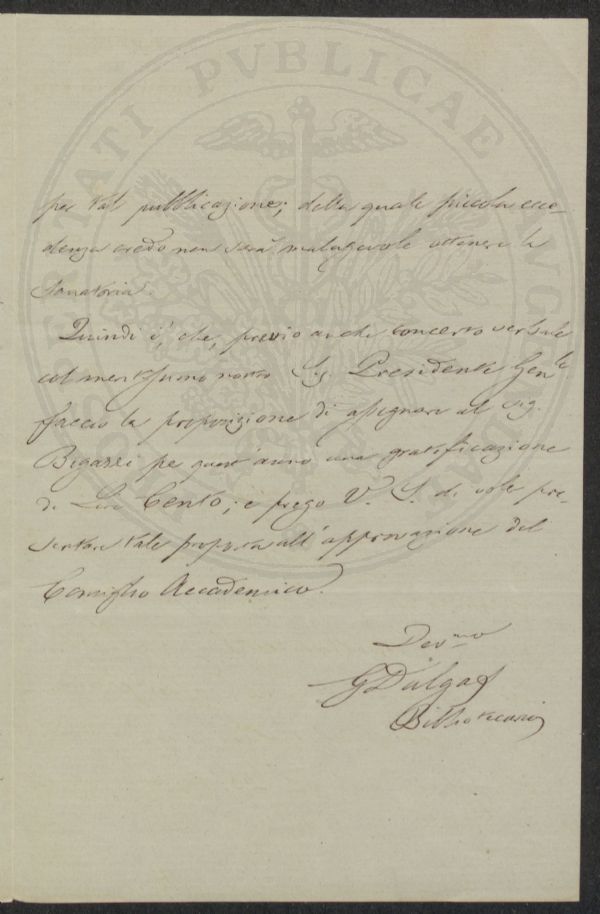 per tal pubblicazione; della quale piccola ecce-
denza credo non sarà malagevole ottenere la
Sanatoria.
Quindi è, che, previo anche concerto verbale
col meritissimo nostro Sig. Presidente Genle
faccio la proposizione di assegnare al Sig.
Bigazzi per quest'anno una gratificazione
di Lire Cento; e prego V. S. di voler pre-
sentare tale proposta all'approvazione del
Consiglio Accademico.
Devmo
G Dalgas
Bibliotecario
PVBLICAE